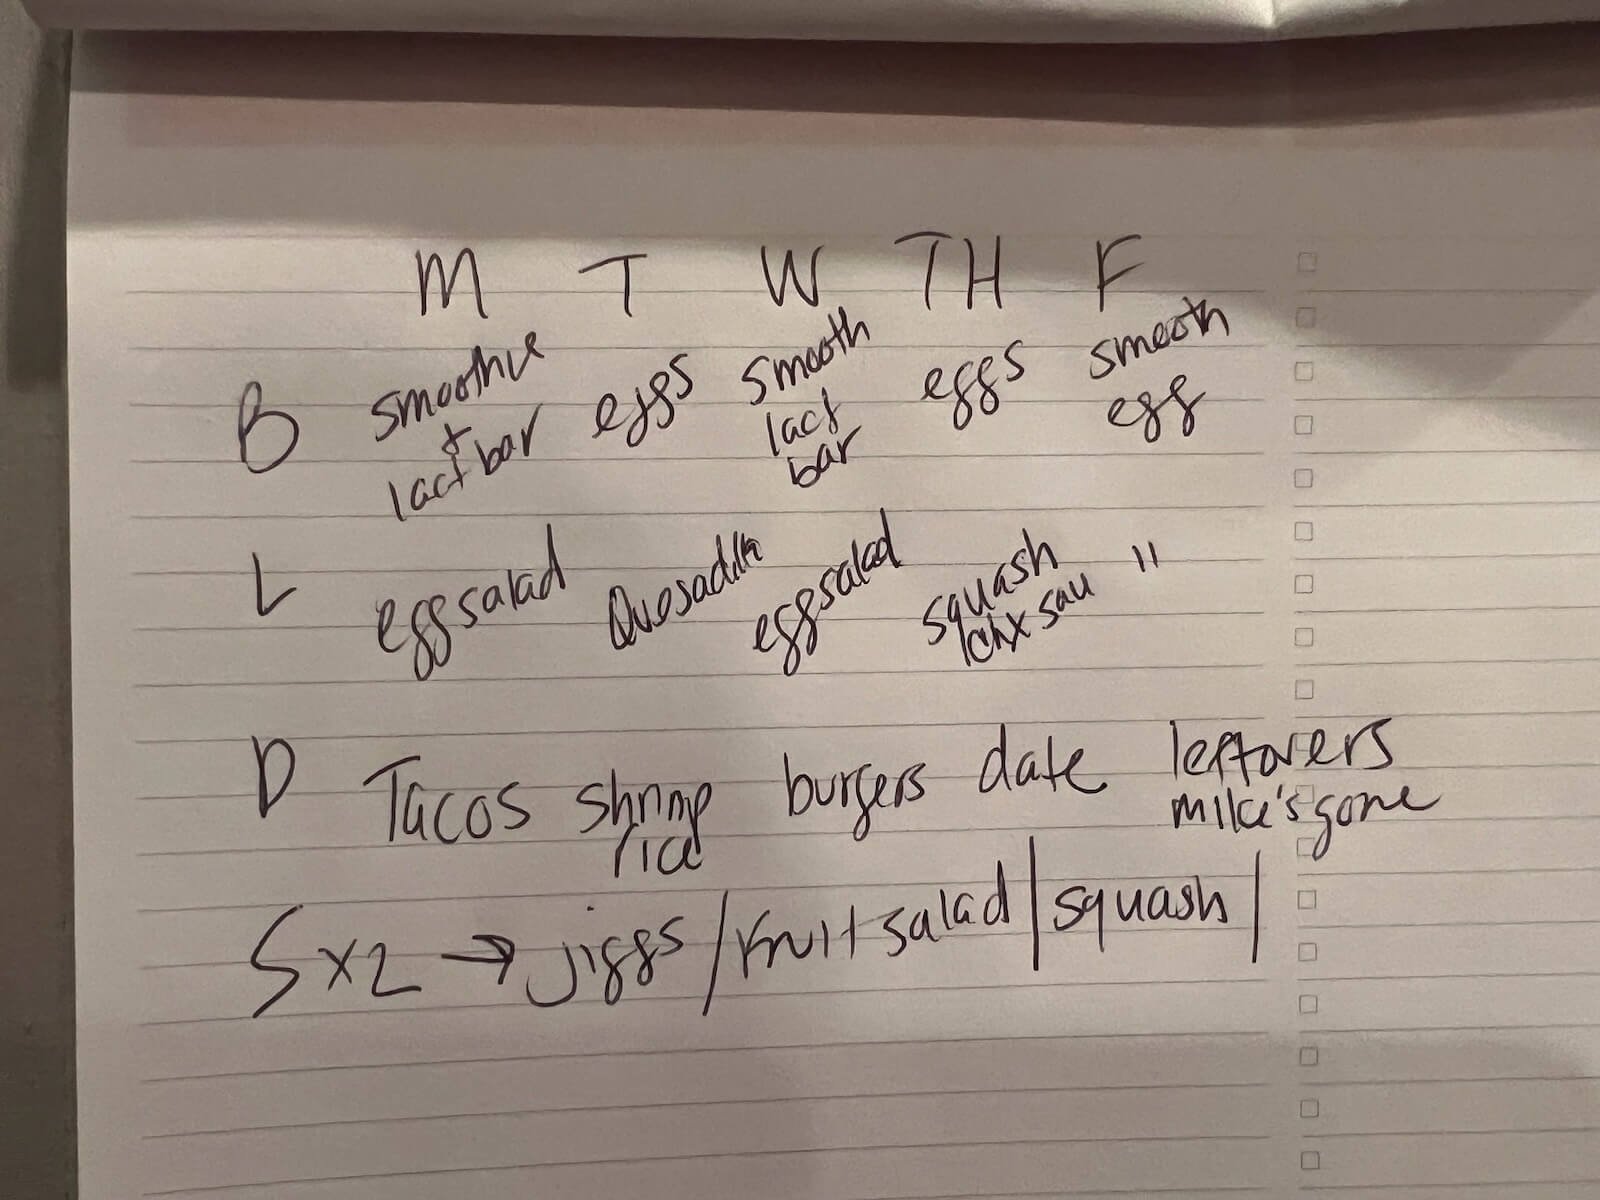 M T W TH F
B smoothie eggs smooth eggs smooth
+ lact egg
lact bar bar
L eggsalad Quesadilla eggsalad squash "
chx sau
D Tacos shrimp burgers date leftovers
rice mike's gone
S x2 → jiggs / fruit salad | squash |